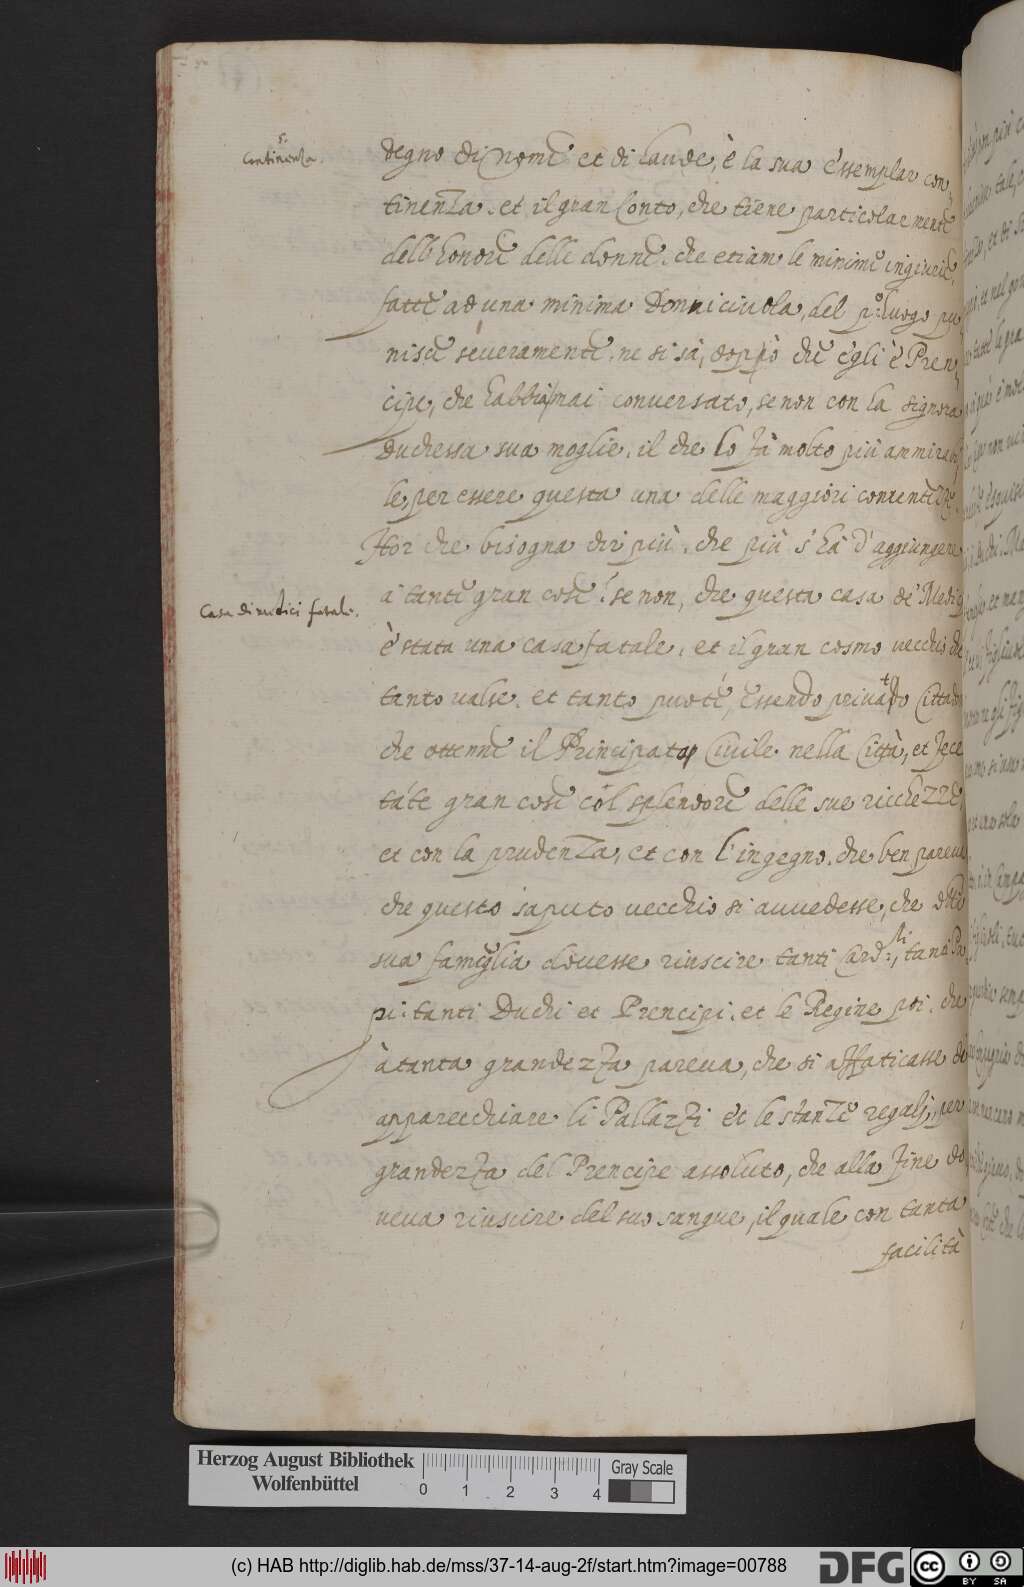 5.
Continenza.
degno di nome et di laude, è la sua essemplar con-
tinenza. et il gran conto, che tiene particolarmente
dell'honore delle donne. che etiam le minime ingiurie,
fatte ad una minima Donniciuola, del p.º luogo pu
nisce severamente. ne si sà, doppò che egli è Pren-
cipe, che habbia mai conversato, se non con la signora
Duchessa sua moglie. il che lo fà molto più ammirabi
le, per essere questa una delle maggiori
Hor che bisogna dir più. che più s'hà d'aggiungere
Casa di medici fatale.
à tante gran cose? se non, che questa casa de' Medici
è stata una casa fatale. et il gran cosmo vecchio che
tanto valse. et tanto puotè, essendo privato Cittad
che ottenne il Principato Civile nella Città, et fece
tate gran cose col splendore delle sue ricchezze
et con la prudenza, et con l'ingegno. che ben pareva
che questo saputo vecchio si avvedesse, che
sua famiglia dovesse riuscire tanti Card:li, tanti Pa
pi: tanti Duchi et Prencipi. et le Regine poi. che
à tanta grandezza pareva, che si affaticasse di
apparecchiare li Pallazzi et le stanze regalj, per
grandezza del Prencipe assoluto, che alla fine do
veva riuscire del suo sangue, il quale con tanta
facilità
Herzog August Bibliothek
Wolfenbüttel
0 1 2 3 4
Gray Scale
(c) HAB http://diglib.hab.de/mss/37-14-aug-2f/start.htm?image=00788
DFG
cc BY SA